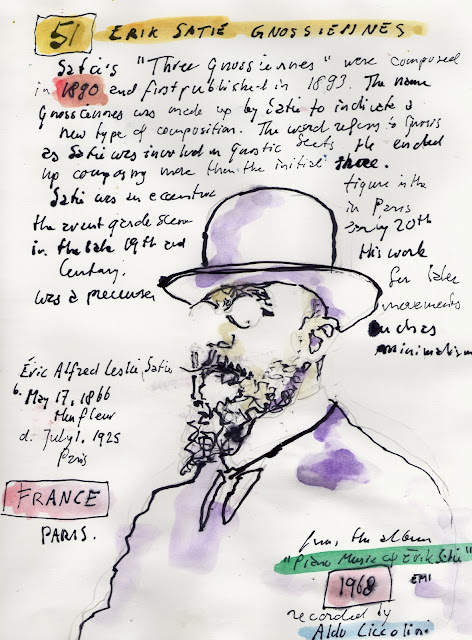 51 ERIK SATIE GNOSSIENNES
Satie's "Three Gnossiennes" were composed
in 1890 and first published in 1893. The name
Gnossiennes was made up by Satie to indicate a
new type of composition. The word refers to gnosis
as Satie was involved in gnostic sects. He ended
up composing more then the initial three.
Satie was an eccentric figure in the
the avant garde scene in Paris
in the late 19th and early 20th
Century. His work
was a precursor for later
movements
such as
minimalism
Éric Alfred Leslie Satie
b. May 17, 1866
Honfleur
d. July 1, 1925
Paris
FRANCE
PARIS.
from the album
"Piano Music of Erik Satie"
1968 EMI
recorded by
Aldo Ciccolini